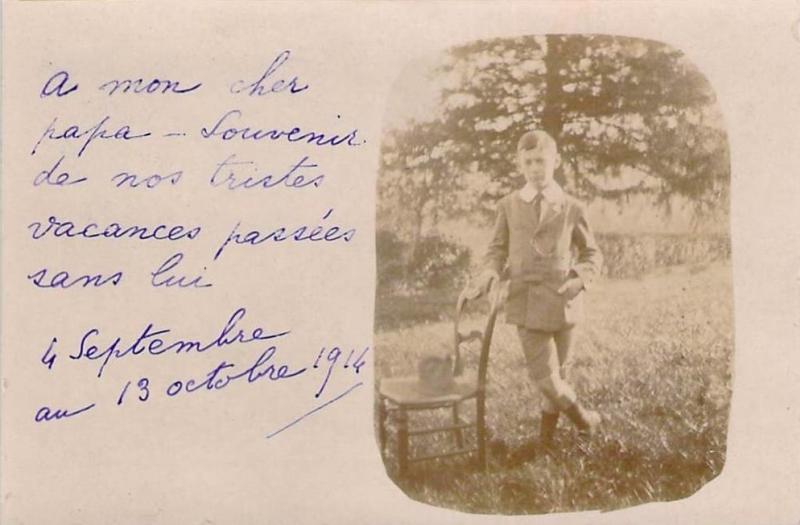 a mon cher
papa - Souvenir
de nos tristes
vacances passées
sans lui
4 Septembre
au 13 octobre 1914